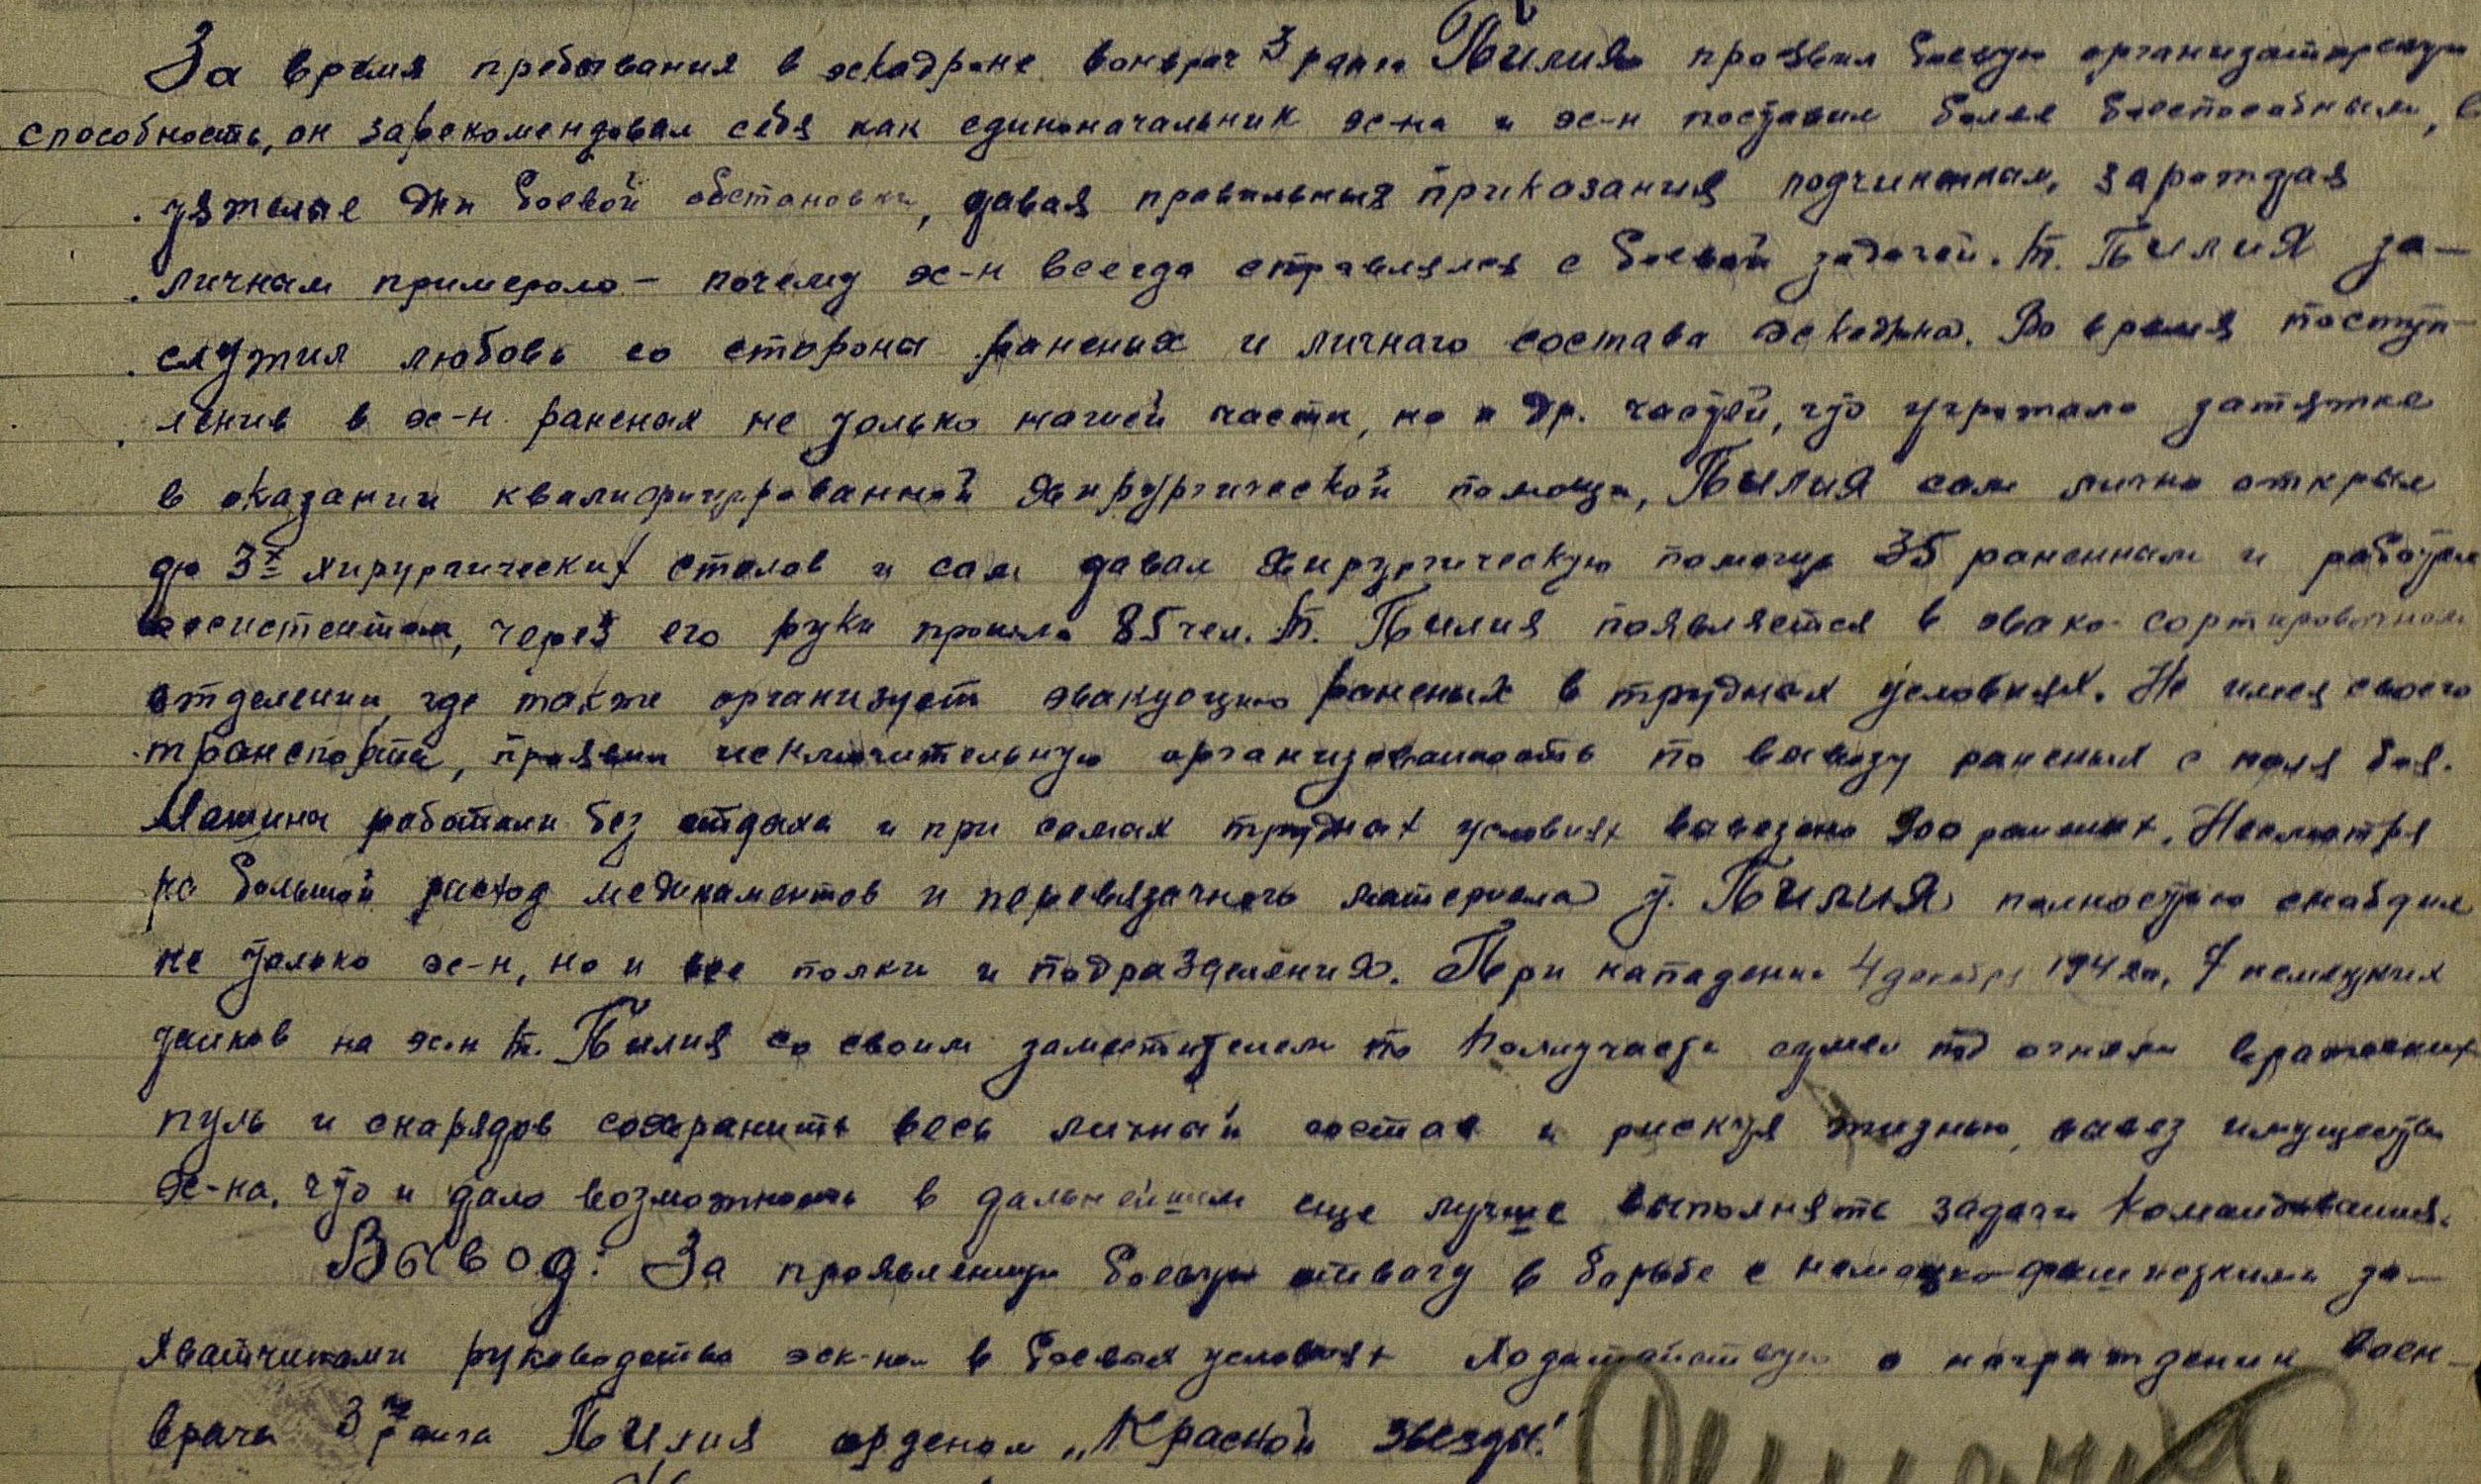 За время пребывания в эскадроне военврач 3 ранга Пилия проявил боевую организаторскую
способность, он зарекомендовал себя как единоначальник эс-на и эс-н поставил более боеспособным, в
тяжелые дни боевой обстановки, давая правильные приказания подчиненным, зарождая
личным примером – почему эс-н всегда справлялся с боевой задачей. т. Пилия за-
служил любовь со стороны раненых и личного состава эскадрона. Во время поступ-
ления в эс-н раненых не только нашей части, но и др. частей, что угрожало затяжке
в оказании квалифицированной хирургической помощи, Пилия сам лично открыл
до 3х хирургических столов и сам давал хирургическую помощь 35 раненным и работал
ассистентом, через его руки прошло 85 чел. т. Пилия появляется в эвако-сортировочном
отделении, где также организует эвакуацию раненых в трудных условиях. Не имея своего
транспорта, проявил исключительную организованность по вывозу раненых с поля боя.
Машины работали без отдыха и при самых трудных условиях вывезено 900 раненых. Несмотря
на большой расход медикаментов и перевязочного материала т. Пилия полностью снабдил
не только эс-н, но и все полки и подразделения. При нападении 4 декабря 1942 г. 7 немецких
танков на эс-н т. Пилия со своим заместителем по политчасти сумел под огнем вражеских
пуль и снарядов сохранить весь личный состав и рискуя жизнью, вывез имущество
эс-на, что и дало возможность в дальнейшем еще лучше выполнять задачи командования.
Вывод: За проявленную боевую отвагу в борьбе с немецко-фашисткими за-
хватчиками руководство эск-ном в боевых условиях ходатайствую о награждении воен-
врача 3го ранга Пилия орденом „Красной звезды".